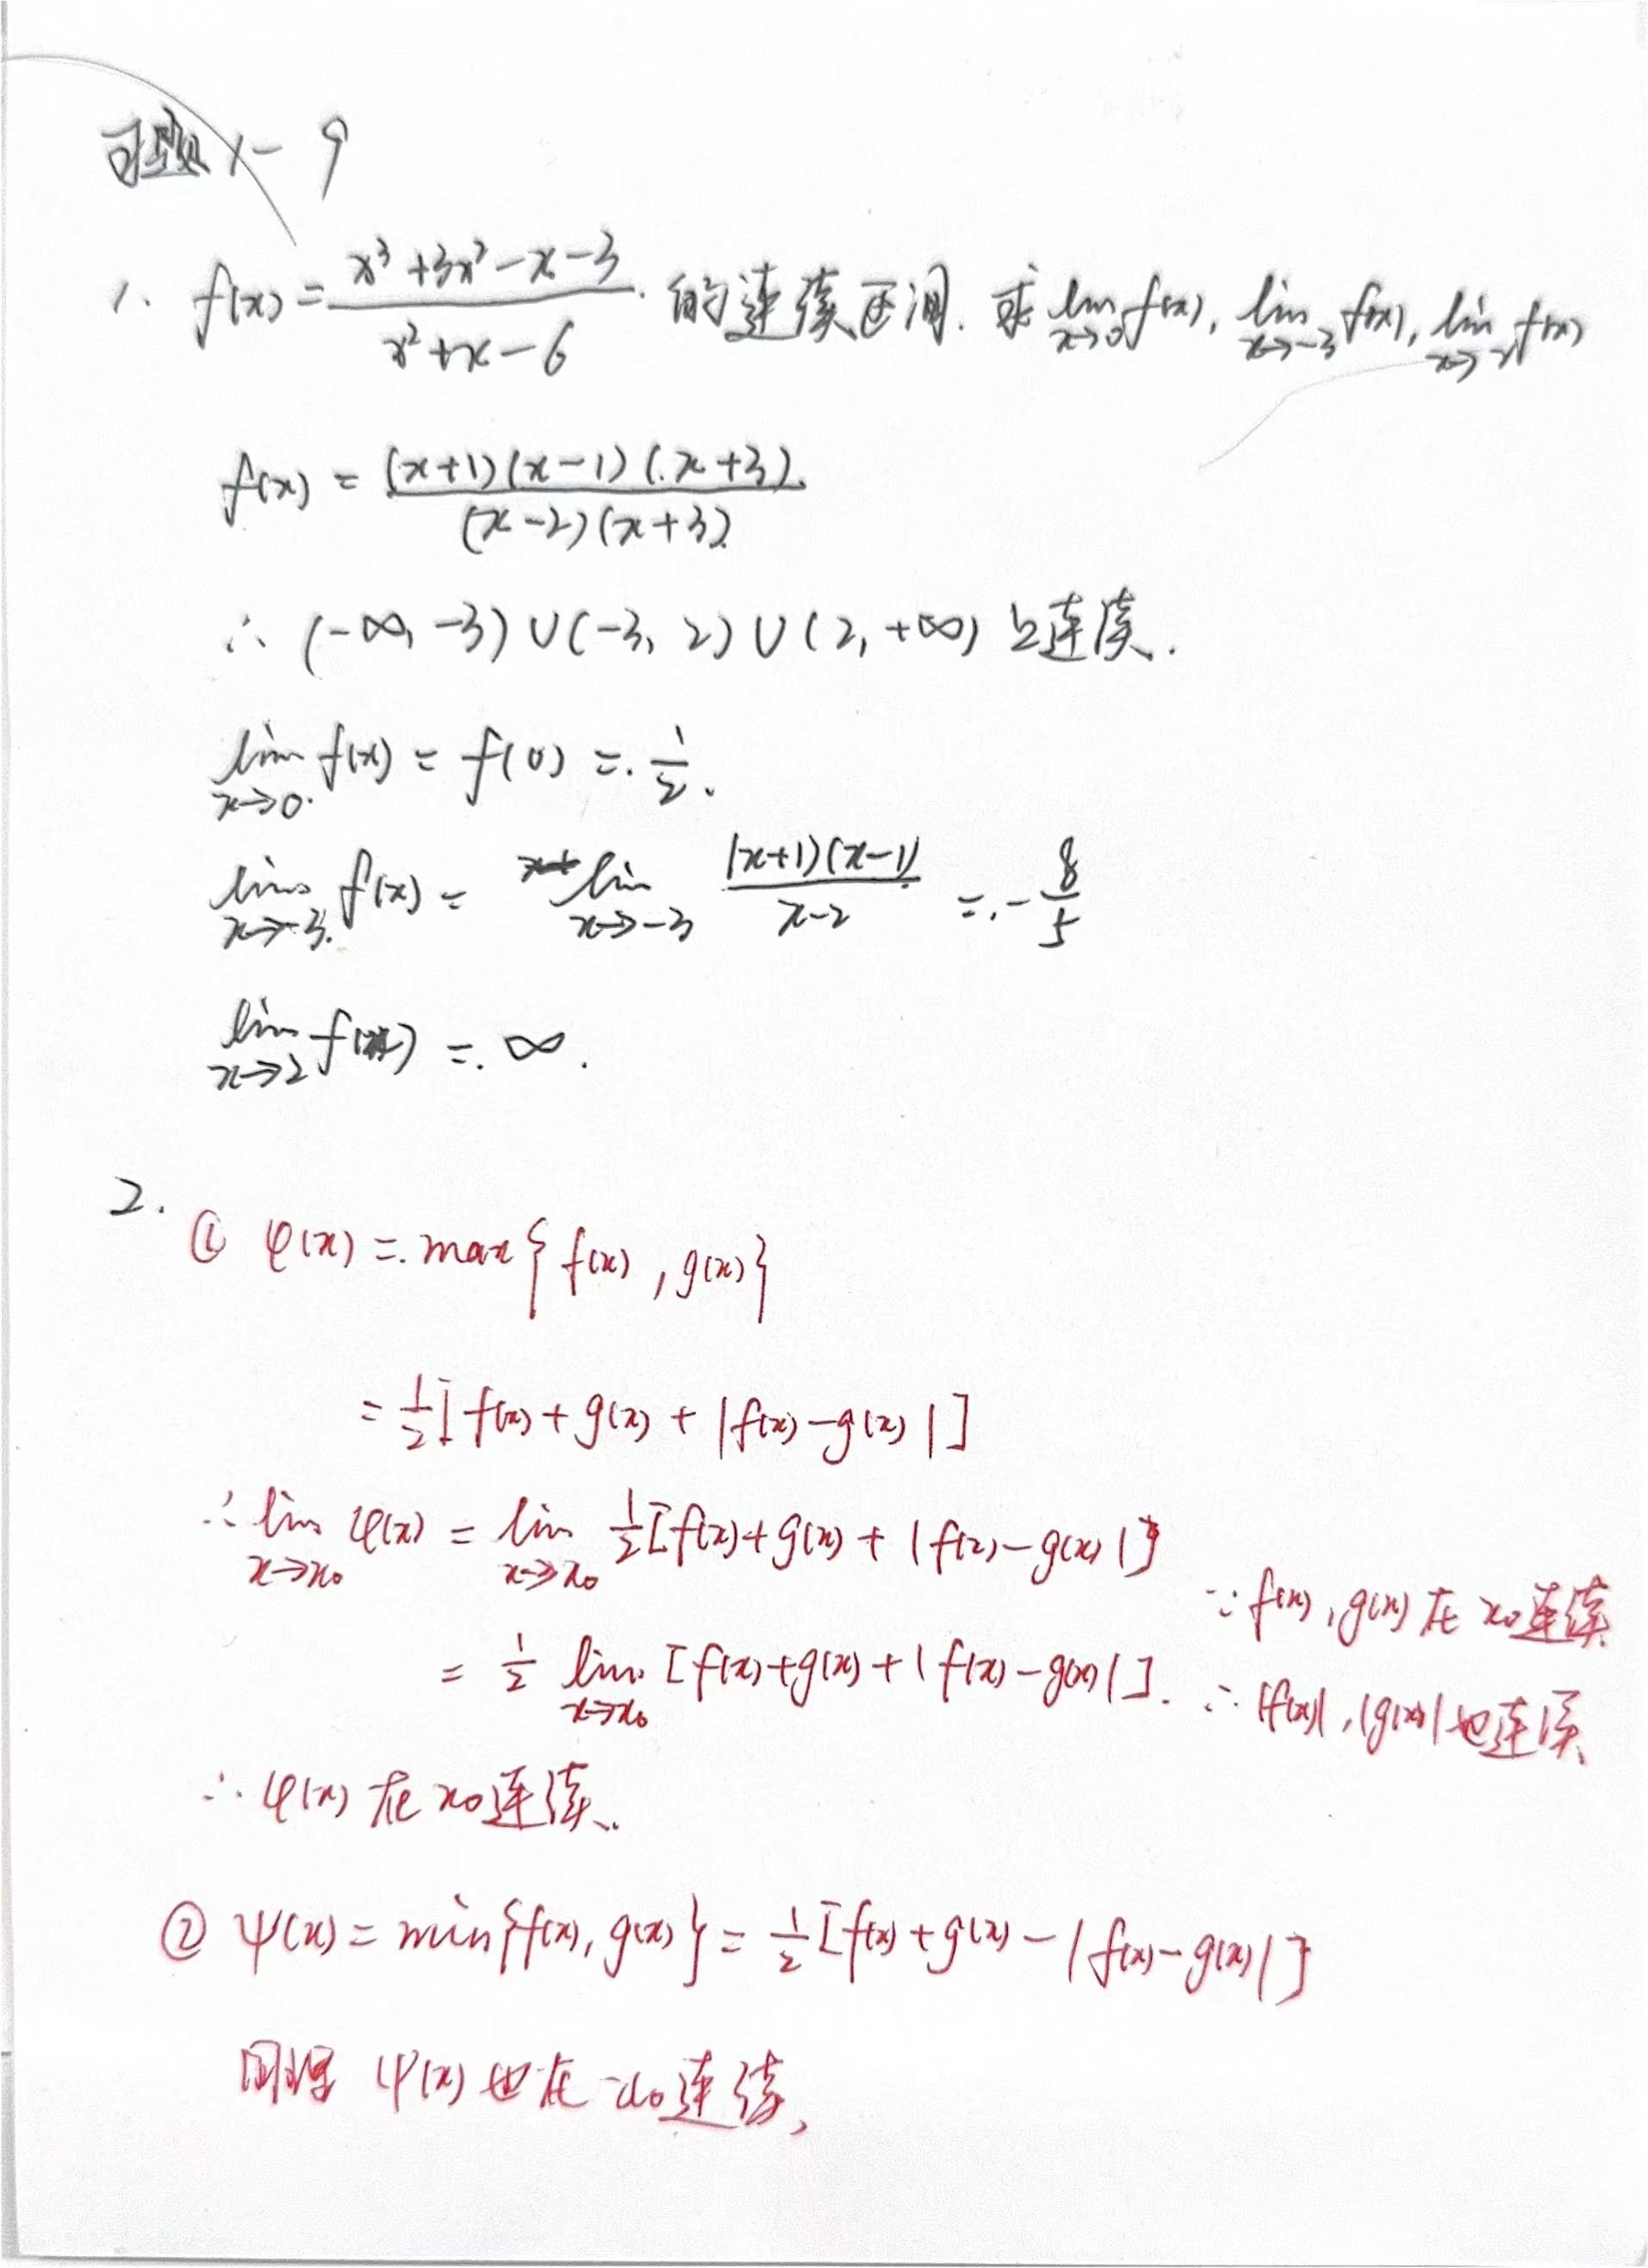 习题1-9
1. f(x) = (x³+3x²-x-3)/(x²+x-6) 的连续区间. 求 lim_{x→0} f(x), lim_{x→-3} f(x), lim_{x→2} f(x)
f(x) = (x+1)(x-1)(x+3)/(x-2)(x+3)
∴ (-∞, -3)∪(-3, 2)∪(2, +∞) 上连续.
lim_{x→0} f(x) = f(0) = 1/2.
lim_{x→-3} f(x) = lim_{x→-3} (x+1)(x-1)/(x-2) = -8/5
lim_{x→2} f(x) = ∞.
2.
① φ(x) = max{f(x), g(x)}
= 1/2[f(x)+g(x)+|f(x)-g(x)|]
∴ lim_{x→x₀} φ(x) = lim_{x→x₀} 1/2[f(x)+g(x)+|f(x)-g(x)|]
∵ f(x), g(x) 在 x₀连续
= 1/2 lim_{x→x₀} [f(x)+g(x)+|f(x)-g(x)|].
∴ |f(x)|, |g(x)| 也连续
∴ φ(x) 在 x₀连续.
② ψ(x) = min{f(x), g(x)} = 1/2[f(x)+g(x)-|f(x)-g(x)|]
同理 ψ(x) 也在 x₀连续,